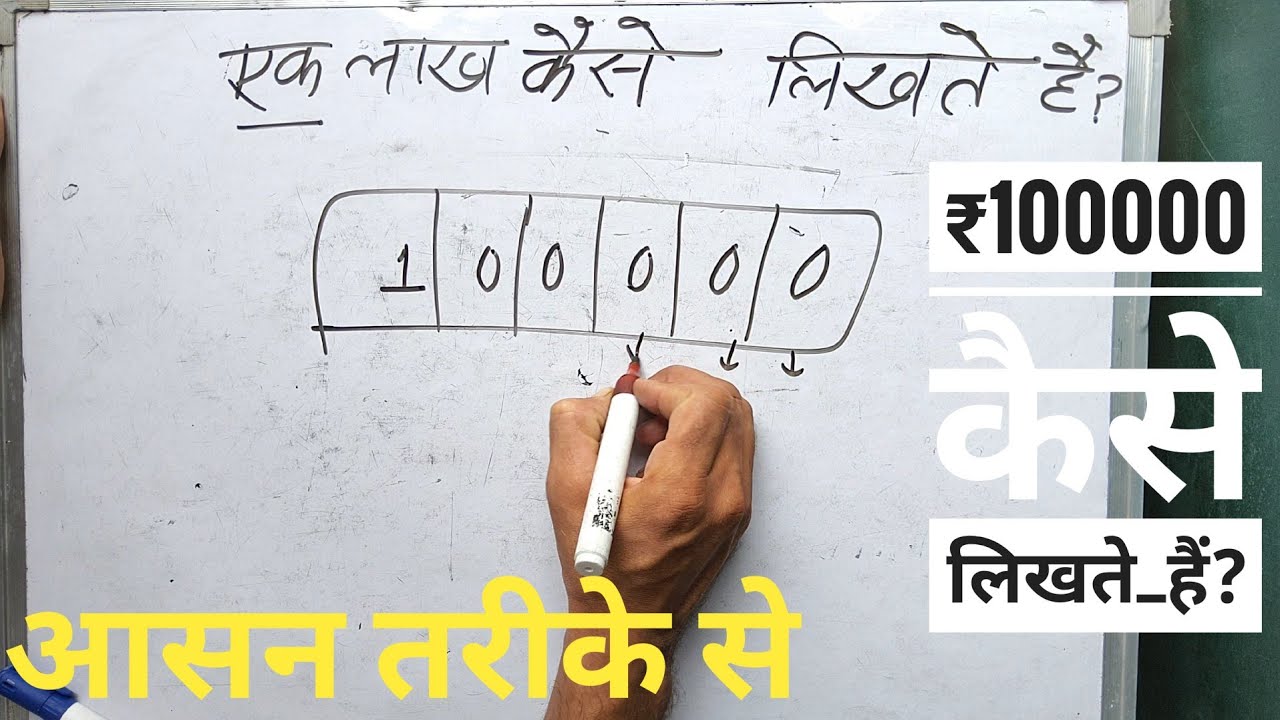 एक लाख कैसे लिखते हैं?
1 0 0 0 0 0
₹100000
कैसे
लिखते_हैं?
आसन तरीके से